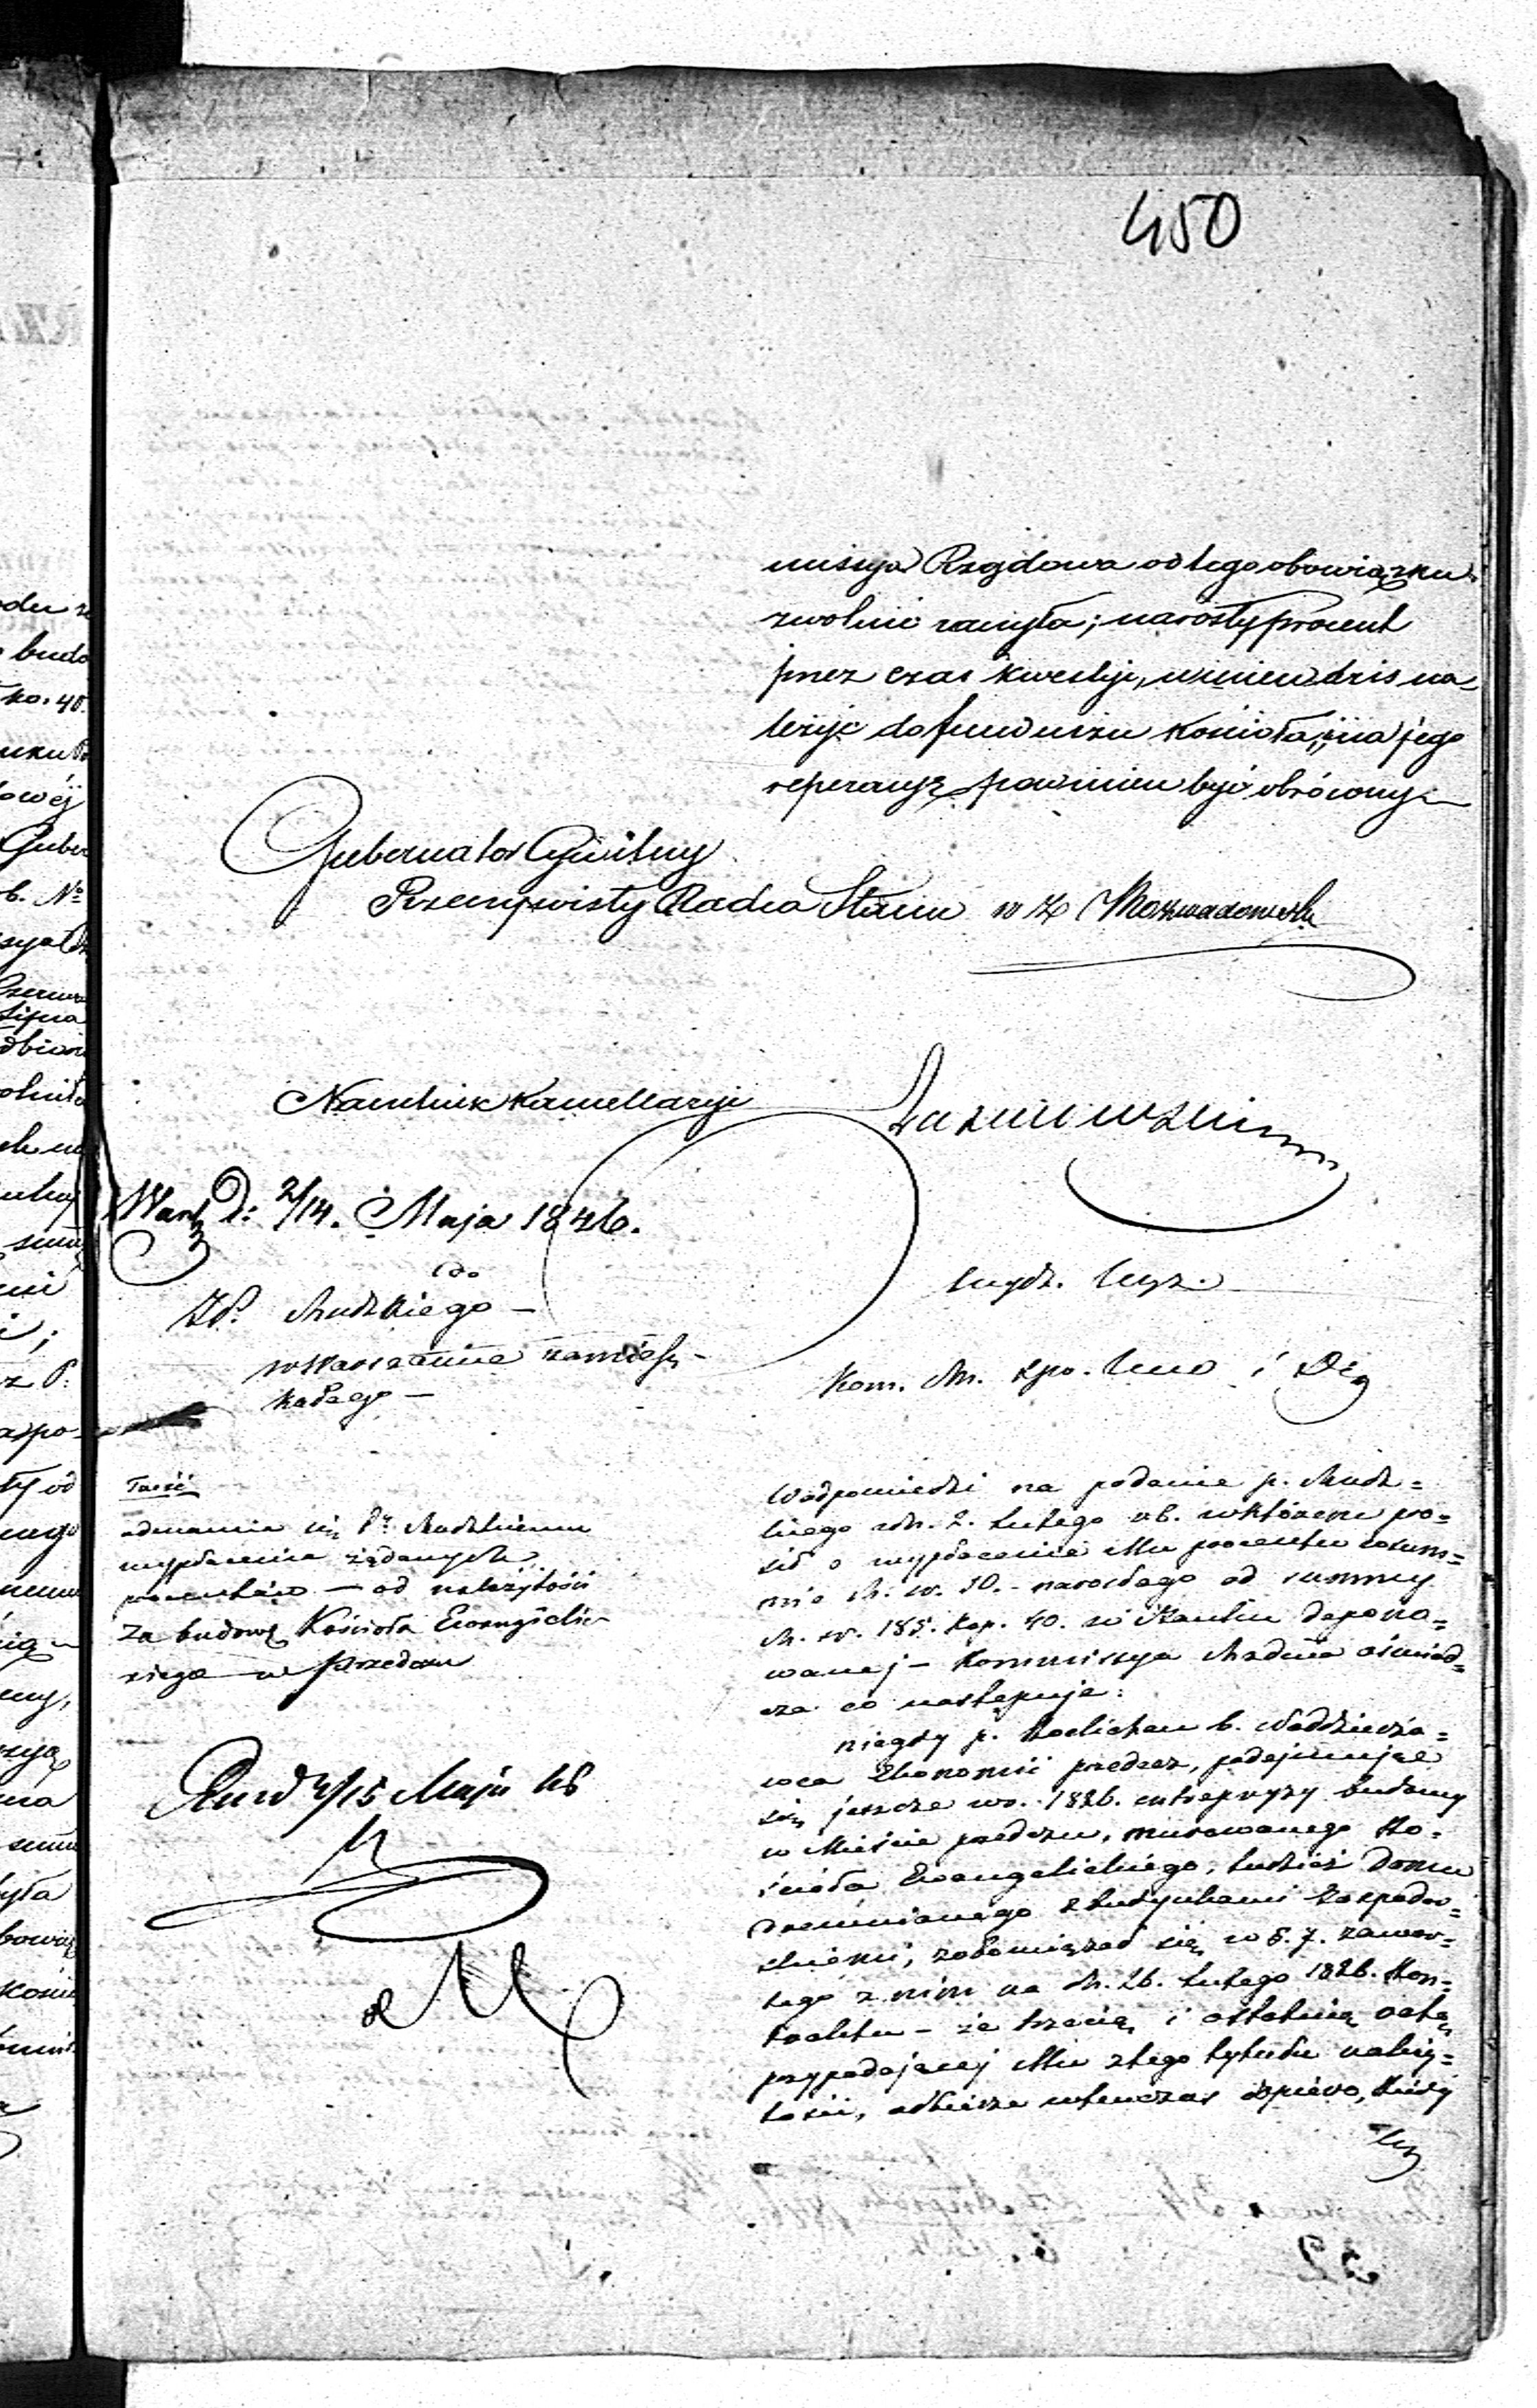 450
misya Rządowa od tego obowiązku
zwolnić raczyła; narosły procent
przez czas kwestyi, winien dziś na-
leżyć do funduszu Kościoła, i na jego
reperacyę powinien być obrócony
Gubernator Cywilny
Rzeczywisty Radca Stanu w z
Naczelnik Kancellaryi
Warsz D: 2/14. Maja 1846.
do
JP. Rudzkiego -
w Warszawie zamiesz-
kałego -
Kom. Rz. Spr. Wew i D
Treść
odmawia się Pu Rudzkiemu
wypłacenia żądanych
procentów - od należytości
za budowę Kościoła Ewangelic-
kiego w Przedczu
2/15 Maja 46
W odpowiedzi na podanie p. Rudz=
kiego z dn. 2. Lutego rb. w którem pro=
sił o wypłacenie Mu procentu w sum=
mie Rs. 10.- narosłego od summy
185. kop. 40. w Banku depono=
wanej - Kommissya Rządowa oświad=
cza co następuje:
niegdy p. b. Naddzierża=
wca Ekonomii Przedecz, podejmując
się jeszcze w r. 1826. entrepryzy budowy
w Mieście Przedczu, murowanego Ko=
ścioła Ewangelickiego, tudzież Domu
drewnianego z budynkami gospodar=
skiemi, zobowiązał się w §. 7. zawar=
tego z nim na d. 26. Lutego 1826. Kon=
traktu - że trzecią i ostatnią ratę
przypadającej Mu z tego tytułu należy=
tości, odbierze wtenczas dopiero, kiedy